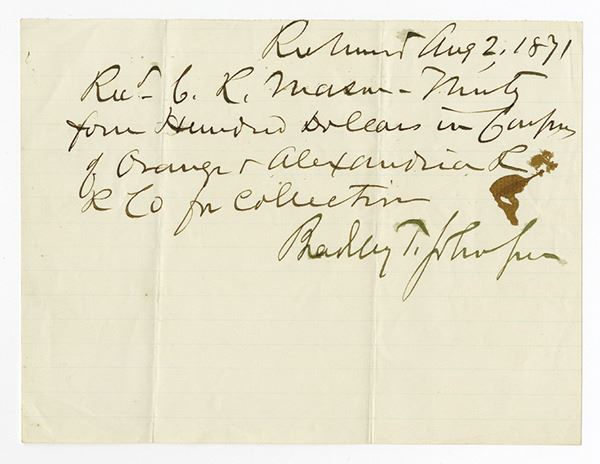 Richmond Aug 2, 1871
Recd C. R. Mason - Thirty
four Hundred Dollars in Coupons
of Orange & Alexandria R
R Co for collection
Bradley T. Johnson